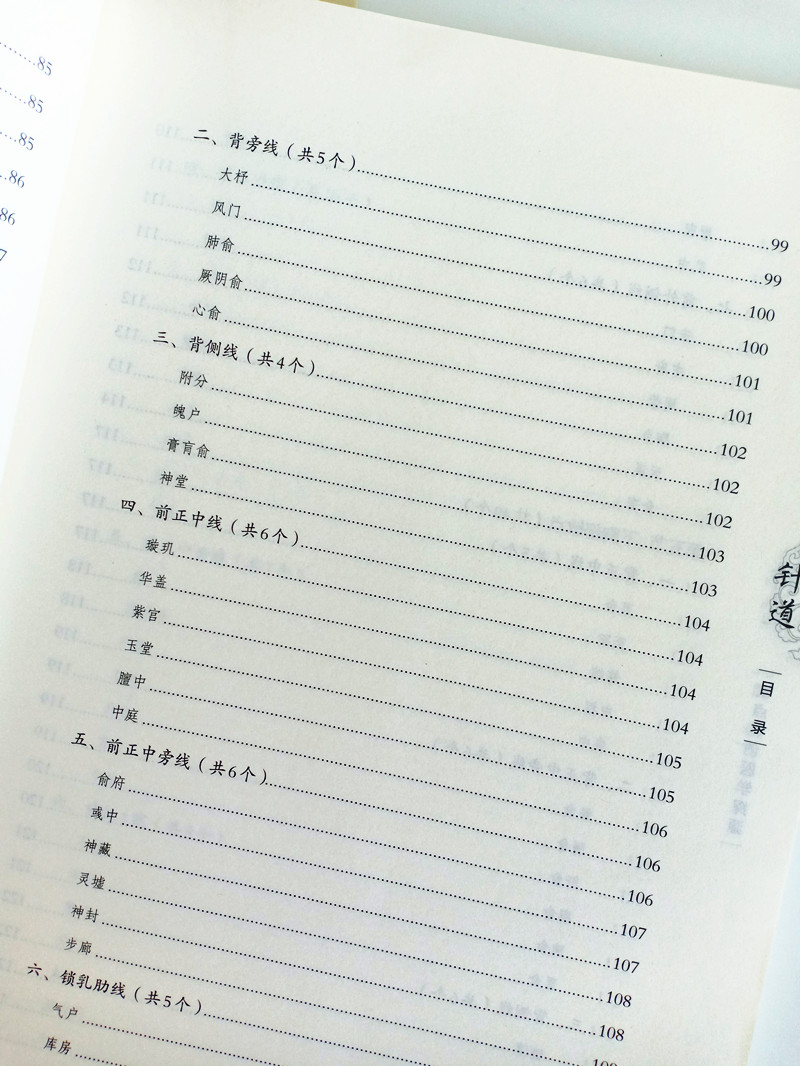 85
85
85
86
86
7
二、背旁线（共5个）……99
大杼……99
风门……100
肺俞……100
厥阴俞……101
心俞……101
三、背侧线（共4个）……102
附分……102
魄户……102
膏肓俞……103
神堂……103
四、前正中线（共6个）……104
璇玑……104
华盖……104
紫官……104
玉堂……105
膻中……105
中庭……106
五、前正中旁线（共6个）……106
俞府……106
彧中……107
神藏……107
灵墟……108
神封……108
步廊……109
六、锁乳肋线（共5个）……
气户……
库房……
针道
目录